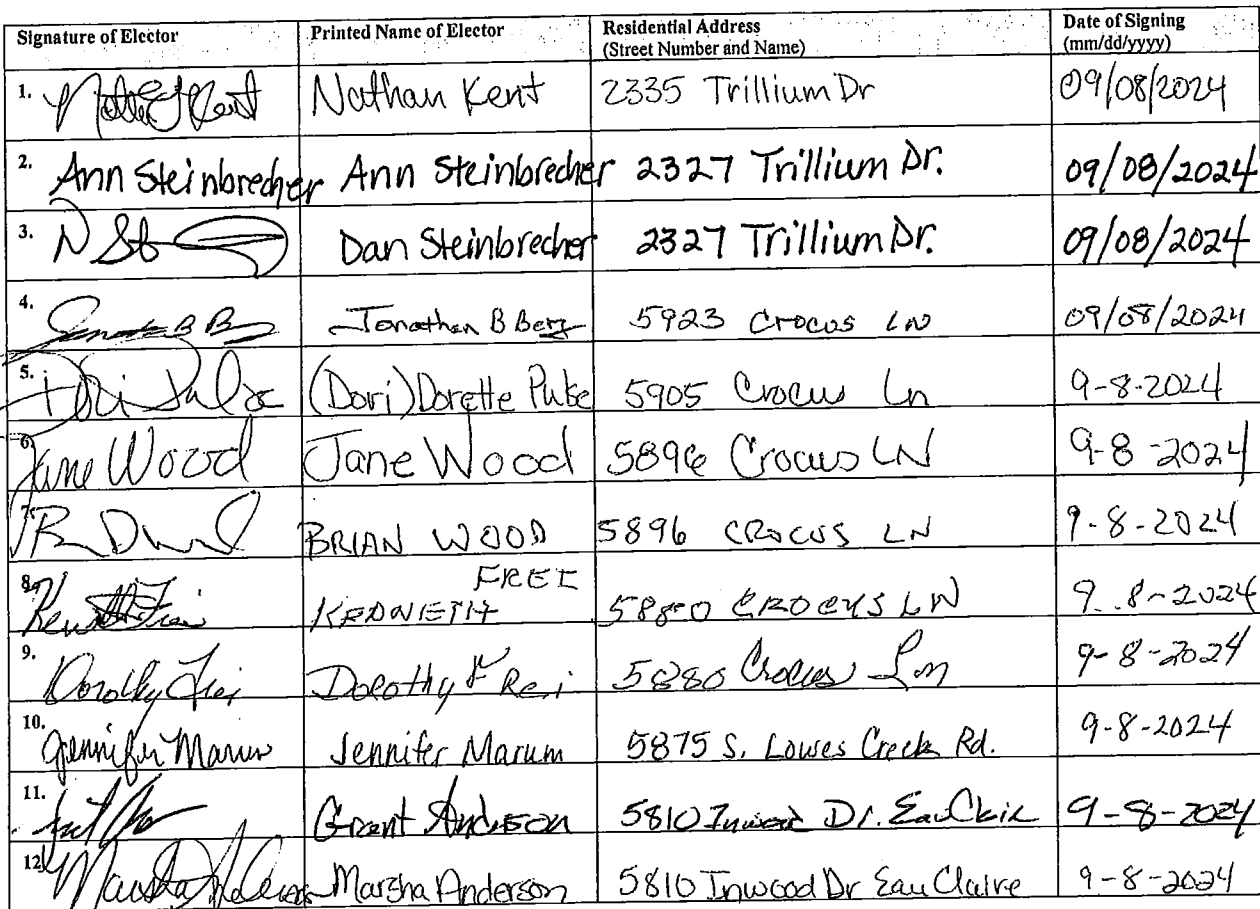 Signature of Elector Printed Name of Elector Residential Address Date of Signing
(Street Number and Name) (mm/dd/yyyy)
1. Kent Nathan Kent 2335 Trillium Dr 09/08/2024
2. Ann Steinbrecher Ann Steinbrecher 2327 Trillium Dr. 09/08/2024
3. Dan Steinbrecher 2327 Trillium Dr. 09/08/2024
4. Jonathan B Berg 5923 Crocus LN 09/08/2024
5. Dori (Dori) Dorette 5905 Crocus Ln 9-8-2024
6. Jane Wood Jane Wood 5896 Crocus LN 9-8-2024
7. BRIAN WOOD 5896 CROCUS LN 9-8-2024
FREI
8. KENNETH 5880 CROCUS LN 9-8-2024
9. Dorothy Frei Dorothy Frei 5880 Crocus Ln 9-8-2024
10. Jennifer Marum Jennifer Marum 5875 S. Lowes Creek Rd. 9-8-2024
11. Grant Anderson 5810 Inwood Dr. Eau Clair 9-8-2024
12. Marsha Anderson 5810 Inwood Dr Eau Claire 9-8-2024